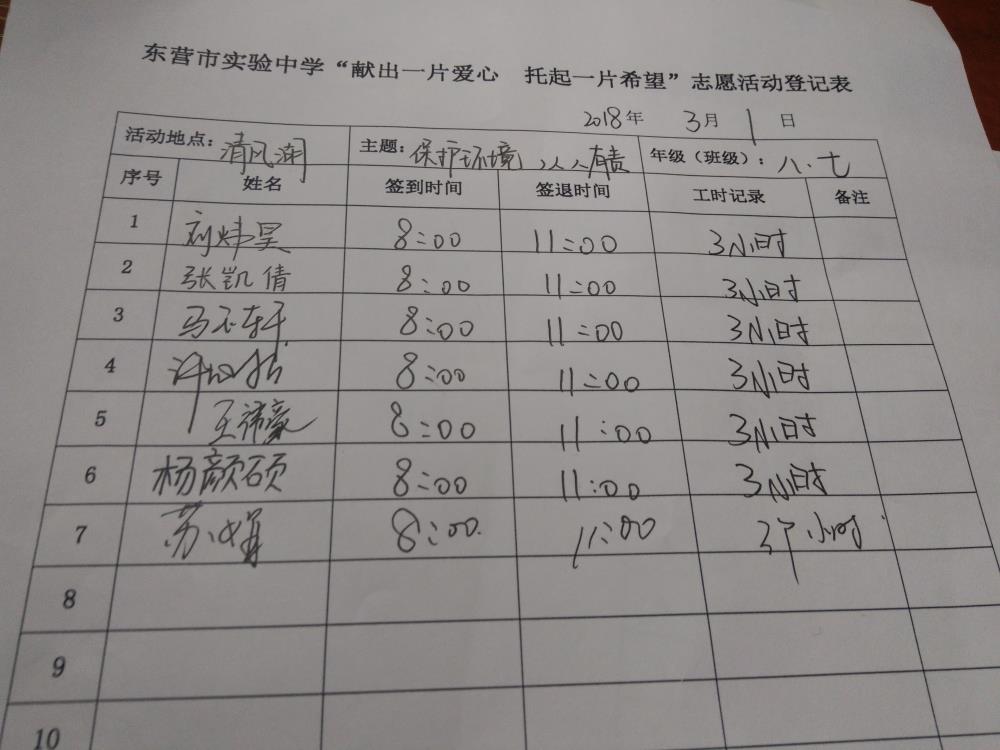 东营市实验中学“献出一片爱心 托起一片希望”志愿活动登记表
2018年 3月 1日
活动地点：清风湖 主题：保护环境 人人有责 年级（班级）：八.七
序号 姓名 签到时间 签退时间 工时记录 备注
1 刘炜昊 8:00 11:00 3小时
2 张凯倩 8:00 11:00 3小时
3 8:00 11:00 3小时
4 8:00 11:00 3小时
5 王祎豪 8:00 11:00 3小时
6 杨颜硕 8:00 11:00 3小时
7 8:00 11:00 3个小时
8
9
10